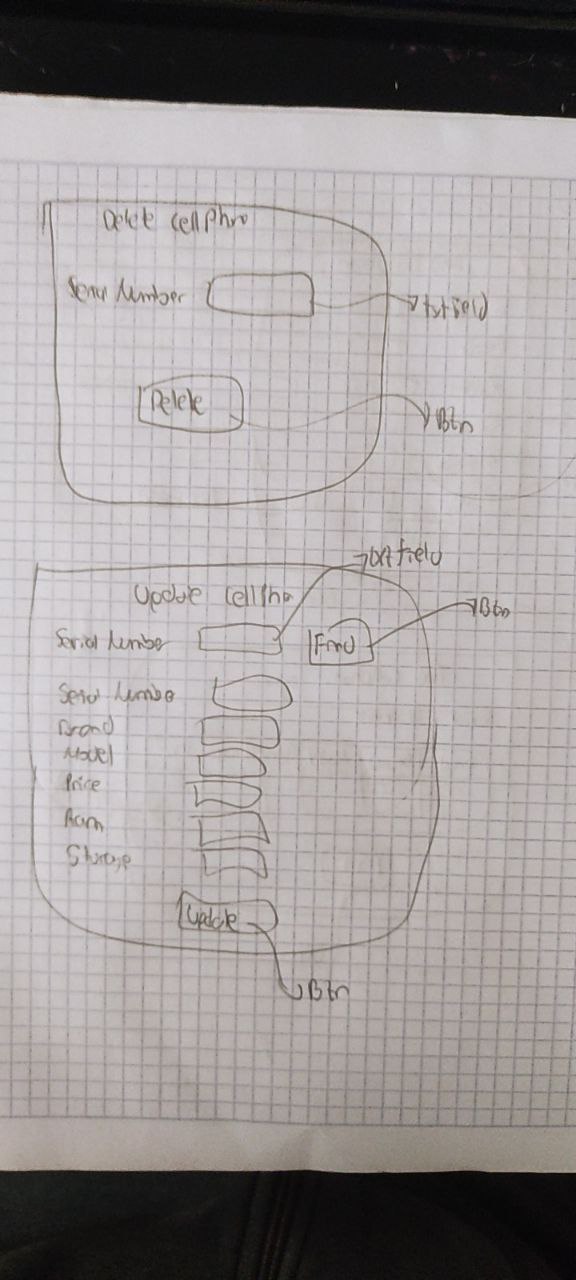 Delete Cellphro
Serial Number
txtfield
Delete
Btn
txt field
Update Cellpho
Btn
Serial Number
Find
Serial Numbe
Brand
Model
Price
Ram
Storage
Update
Btn